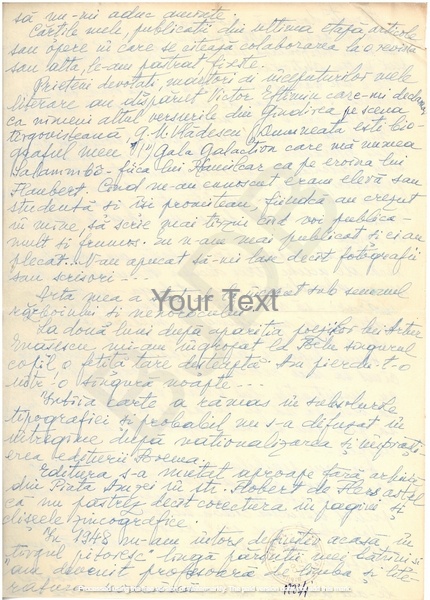 să nu-mi aduc aminte.
Cărțile mele, publicații din ultima etapă, articole
sau opere în care se citează colaborarea la o revistă
sau alta, le-am păstrat triste.
Prieteni devotați, martori ai începuturilor mele
literare au dispărut Victor Eftimiu care-mi declama
ca nimeni altul versurile din Gîndirea pe scena
tergovișteană, G. M. Vlădescu ("Dumneata ești bio-
graful meu"!) Gala Galaction care mă numea
Salammbô - fiica lui Hamilcar ca pe eroina lui
Flaubert. Cînd ne-am cunoscut eram elevă sau
studentă și îmi promiteau, fiindcă au crezut
în mine, să scrie mai tîrziu cînd voi publica
mult și frumos. Eu n-am mai publicat și ei au
plecat. N-au apucat să-mi lase decît fotografii
sau scrisori...
Arta mea a sub semnul
războiului și
Your Text
La două luni după apariția poeziilor lui Artur
Enășescu mi-am îngropat la singurul
copil, o fetiță tare deșteaptă. Am pierdut-o
într-o singură noapte...
Întîia carte a rămas în subsolurile
tipografiei și probabil nu s-a difuzat în
întregime după naționalizarea și
erea editurii
Editura s-a mutat aproape fără arhivă
din Piața Amzei în str. Robert de Flers astfel
că nu păstrez decît corectura în pagini și
clișeele zincografice.
"În 1948 m-am întors definitiv acasă, în
"tîrgul pitoresc" lîngă părinții mei bătrîni și
am devenit profesoară de limba și lite-